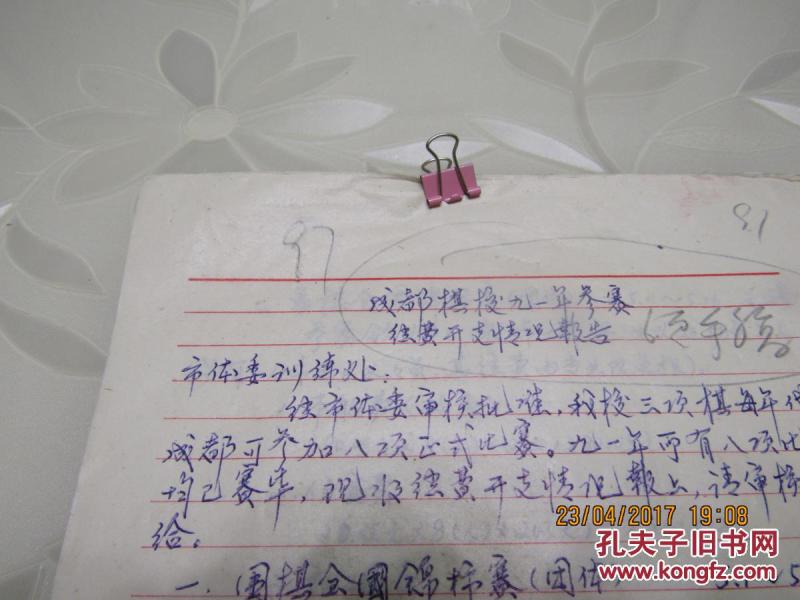 97
81
成都棋校九一年参赛
经费开支情况報告
市体委训练处:
经市体委审核批准,我校三项棋每年
成都可参加八项正式比赛。九一年所有八项比
均已赛毕,现将经费开支情况報上,请审核
给。
23/04/2017 19:08
一.围棋全國锦标赛(团体
孔夫子旧书网
www.kongfz.com